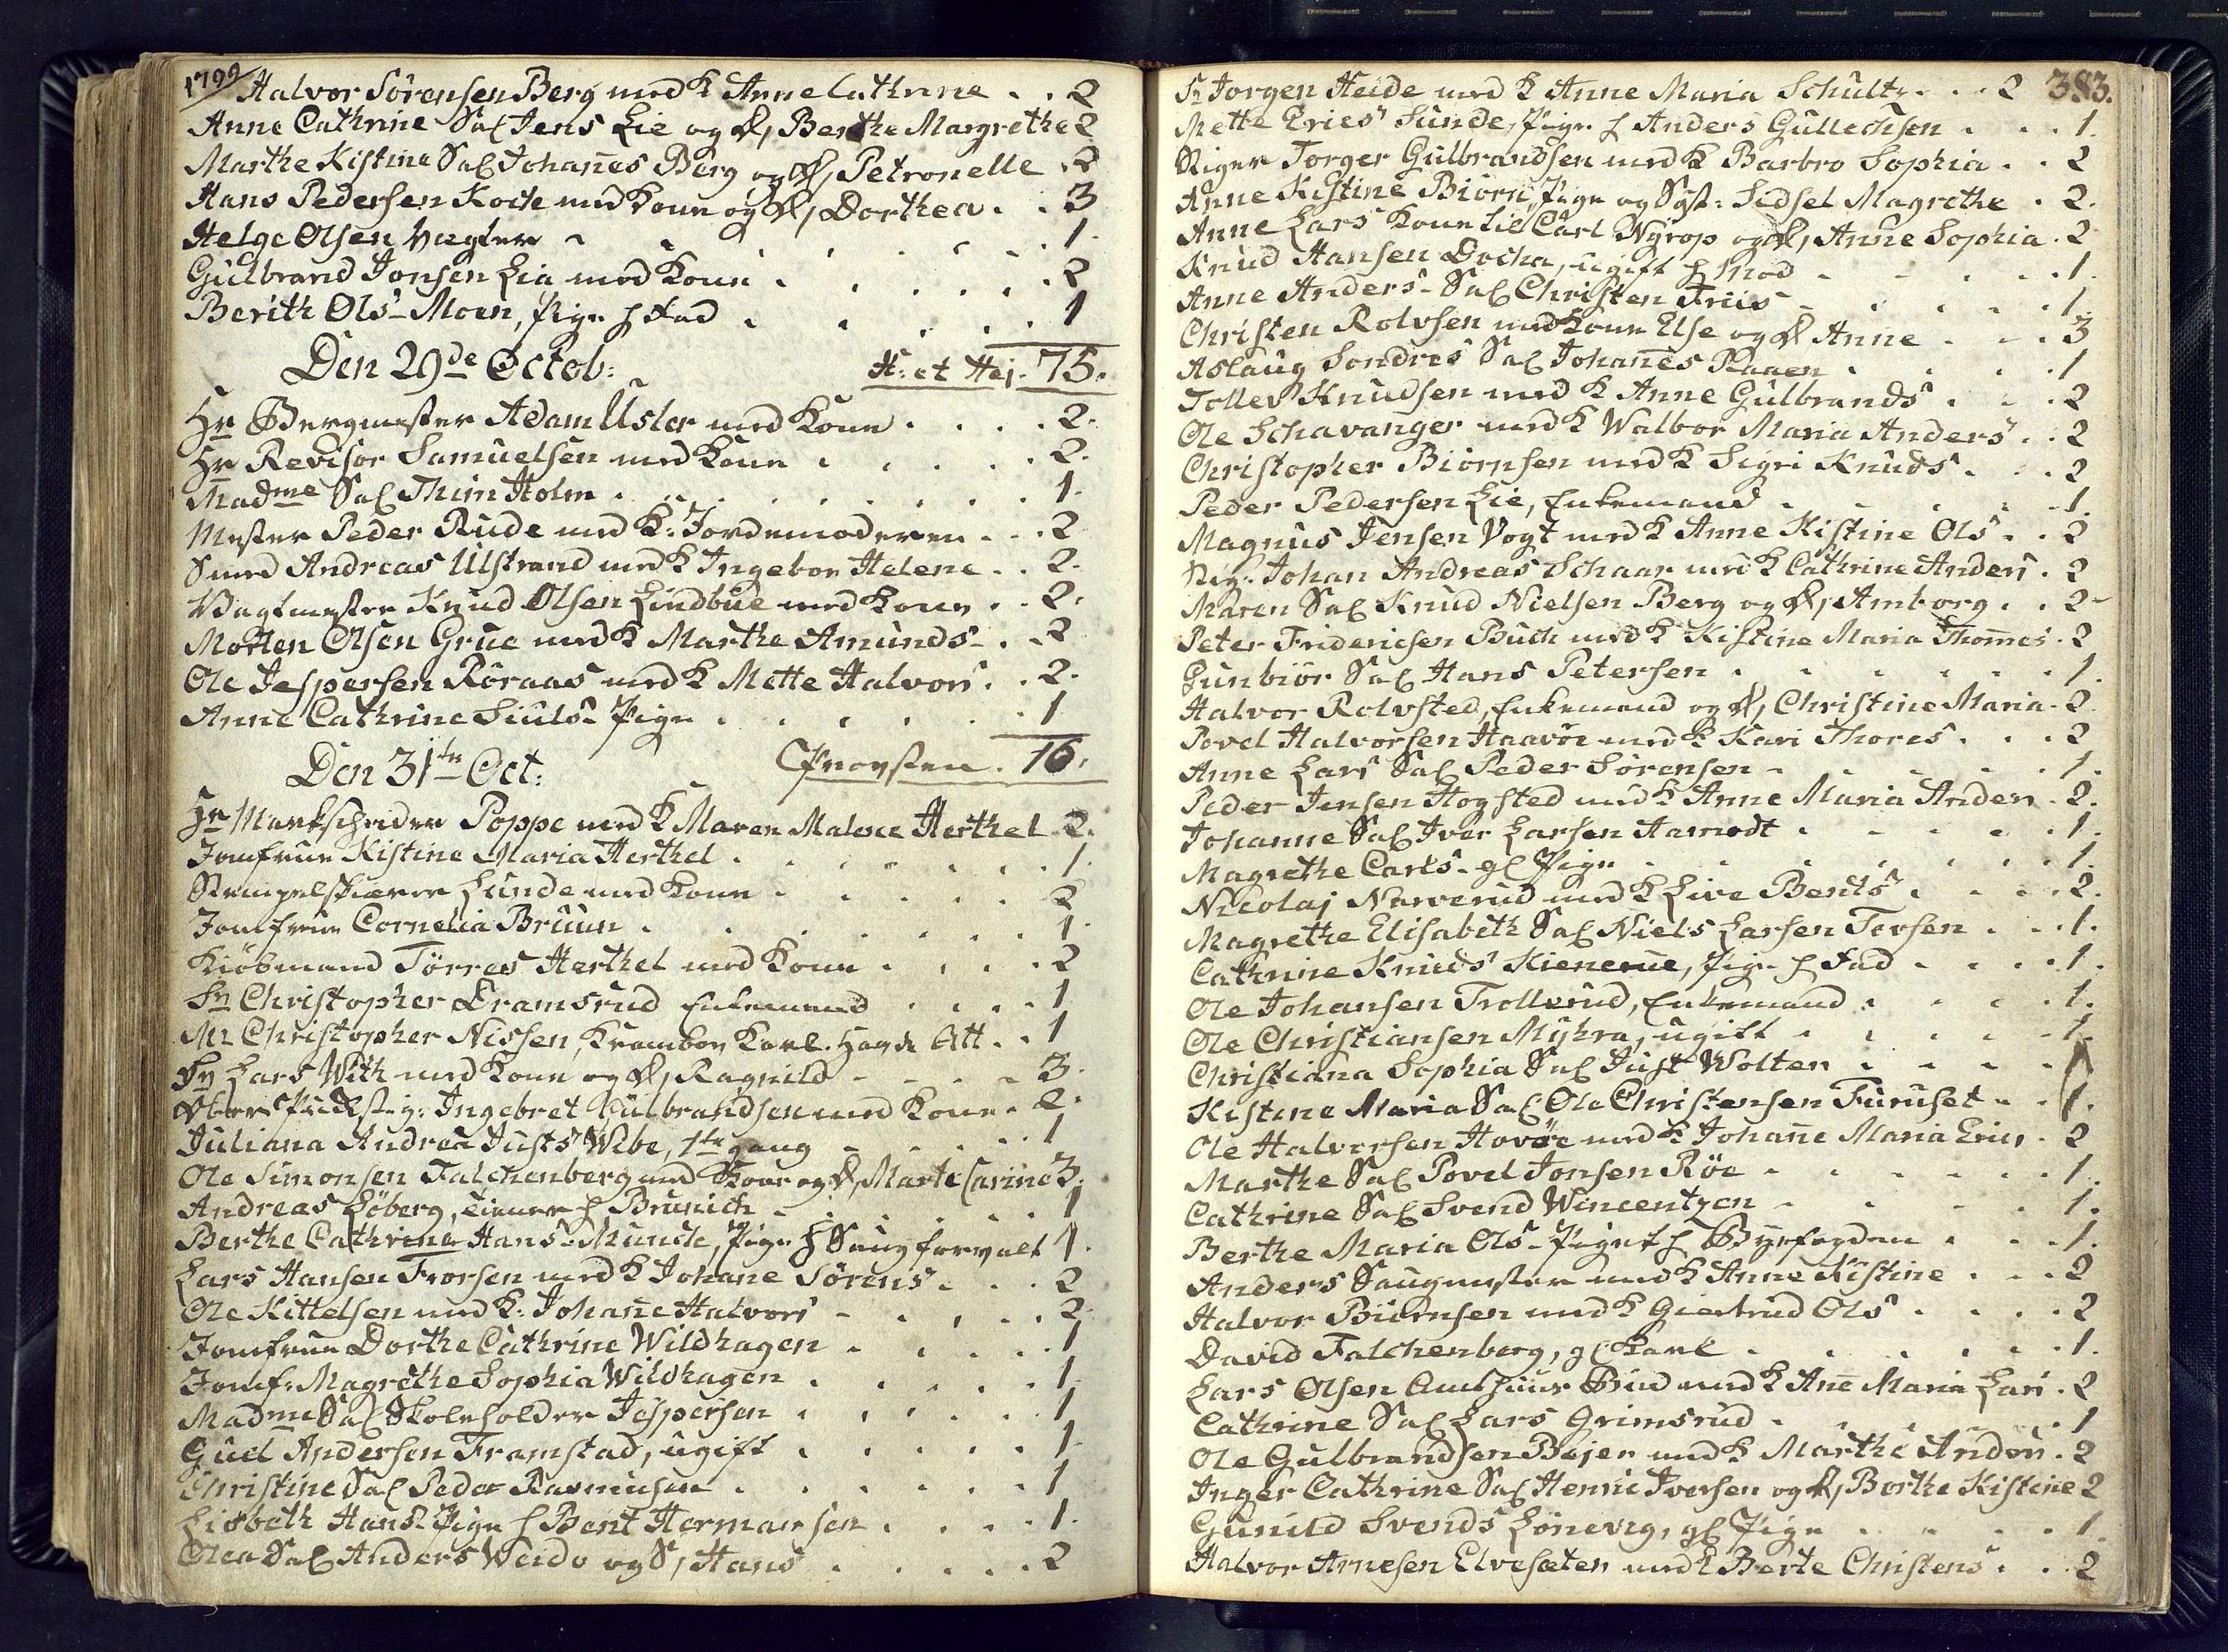 1799
Halvor Sörensen Berg med K Anne Cathrine . . 2
Anne Cathrine Sal Jens Lie og D, Berthe Margrethe 2
Marthe Kistine Sal Johanes Berg og D, Petronelle . 2
Hans Pedersen Koch med Kone og D, Dorthea . . 3
Helge Olsen Vegter . . . 1.
Gulbrand Jonsen Lia med Kone . . . 2
Berith Ols- Moen, Pige h fad . . . 1
Den 29de Octob: H: et Hej. 75.
Hr Bergmester Adam Usler med Kone . . . . 2.
Hr Revisor Samuelsen med Kone . . . 2.
Madme Sal Thim Holm . . . 1.
Mester Peder Rude med K: Jordemoderen . . . 2
Smed Andreas Ulstrand med K Ingebor Helene . . 2.
Vagtmester Knud Olsen Lindbue med Kone . . 2.
Morten Olsen Grue med K Marthe Amunds- . . 2
Ole Jespersen Röraas med K Mette Halvors . . 2.
Anne Cathrine Siuls- Pige . . . 1
Den 31te Oct: Provsten. 16.
Hr Markscheider Poppe med K Maren Malene Herthel . 2.
Jomfrue Kistine Maria Herthel . . . 1.
Stempelskierer Lunde med Kone . . . 2
Jomfrue Cornelia Bruun . . . 1.
Kiöbmand Törres Herthel med Kone . . . 2
Sr Christopher Dramsrud Enkemand . . . 1
Mr Christopher Nissen, Krambor Karl. Hagde Att . . 1
Sr Lars With med Kone og D, Ragnild . . . 3.
Ingebret Gulbrandsen med Kone . 2.
Juliana Andrea Justs Wibe, 1te gang . . . 1
Ole Simonsen Falchenberg med Kone og D, Marte Carine 3.
Andreas Löberg, tiener h Brunich . . . 1
Berthe Cathrine Hans- Munch, Pige h Saugforvalt 1.
Lars Hansen Frorsen med K Johane Sörens . . . 2
Ole Kittelsen med K: Johane Halvors . . . 2.
Jomfrue Dorthe Cathrine Wildhagen . . . 1
Jomf: Magrethe Sophia Wildhagen . . . 1
Madme Sal Skoleholder Jespersen . . . 1
Gud Andersen Framstad, ugift . . . 1.
Christine Sal Peder Rasmusen . . . 1
Lisbeth Hans- Pige h Bent Hermansen . . . 1.
Olea Sal Anders Weido og S, Hans . . . 2
383.
Sr Jorgen Heide med K Anne Maria Schultz . . . 2
Mette Erics' Sunde, Pige h Anders Gullechsen . . . 1.
Stiger Torger Gulbrandsen med K Barbro Sophia . . 2
Anne Kistine Biörn, Pige og Syst: Sidsel Magrethe . 2.
Anne Lars' Kone Lie Carl Nyrop og D, Anne Sophia . 2
Knud Hansen Docha, ugift h Mod . . . 1.
Anne Anders- Sal Christen Friis . . . 1.
Christen Rolvsen med Kone Else og D Anne . . . 3
Aslaug Sondres' Sal Johanes Raaen . . . 1
Tollev Knudsen med K Anne Gulbrands' . . . 2
Ole Schavanger med K Walbor Maria Anders' . . 2
Christopher Biörnsen med K Sigri Knuds . . . 2
Peder Pedersen Lie, Enkemand . . . 1.
Magnus Jensen Vogt med K Anne Kistine Ols' . . 2
Stig: Johan Andreas Schaar med K Cathrine Anders . 2
Maren Sal Knud Nielsen Berg og D, Amborg . . 2
Peter Friderichsen Buch med K Kistine Maria Thomes . 2
Gunbiör Sal Hans Petersen . . . 1.
Halvor Rolvsted, Enkemand og D, Christine Maria . 2
Povel Halvorsen Haavöe med K Kari Thores . . . 2
Anne Lars' Sal Peder Sörensen . . . 1.
Peder Jensen Hogsted med K Anne Maria Anders . 2.
Johanne Sal Iver Larsen Aamodt . . . 1.
Magrethe Carls- gl Pige . . . 1.
Nicolaj Narverud med K Live Bents' . . . 2.
Magrethe Elisabeth Sal Niels Larsen Torsen . . . 1.
Cathrine Knuds' Kienerue, Pige h Fad . . . 1.
Ole Johansen Trollerud, Enkemand . . . 1.
Ole Christiansen Myhra, ugift . . . 1.
Christiana Sophia Sal Just Wolten . . . 1
Kistine Maria Sal Ole Christensen Furuset . . 1.
Ole Halvorsen Hovöe med K Johane Maria Erics . 2
Marthe Sal Povel Jonsen Röe . . . 1.
Cathrine Sal Svend Wincentzen . . . 1.
Berthe Maria Ols- Pige h Byefogden . . . 1.
Anders Saugmester med K Anne Kistine . . . 2
Halvor Biörnsen med K Giertrud Ols' . . . 2
David Falchenberg, gl Karl . . . 1.
Lars Olsen Bud med K Ane Maria Lars . 2
Cathrine Sal Lars Grimsrud . . . 1
Ole Gulbrandsen Bejer med K Marthe Anders . 2
Inger Cathrine Sal Henric Iversen og D, Borthe Kistine 2
Gunild Svends' Löneveg, gl Pige . . . 1.
Halvor Arnesen Elvesæter med K Berte Christens . . 2